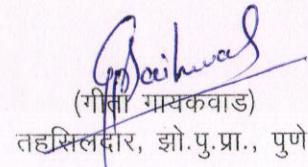 (गीता गायकवाड)
तहसिलदार, झो.पु.प्रा., पुणे